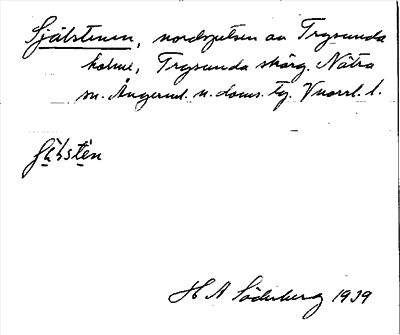 Själstenen, nordspetsen av Trysunda
holme, Trysunda skärg. Nätra
sn. Ångerml. n. doms. tg. Vnorrl. l.
H A Söderberg 1939